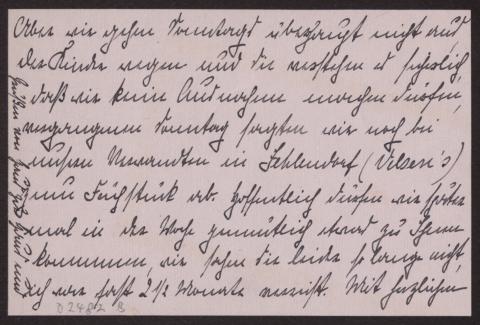 Aber wir gehen Sonntags überhaupt nicht aus
der Kinder wegen und Sie verstehen es sicherlich,
daß wir keine Ausnahmen machen dürfen,
vergangenen Sonntag sagten wir noch bei
unsren Verwandten in Zehlendorf
zum Frühstück ab. Hoffentlich dürfen wir später
mal in der Woche gemütlich etwas zu Ihnen
kommen, wir sahen Sie leider so lange nicht,
ich war fast 2 1/2 Monate verreist. Mit herzlichen
Grüßen von Haus zu Haus
D 2482 B